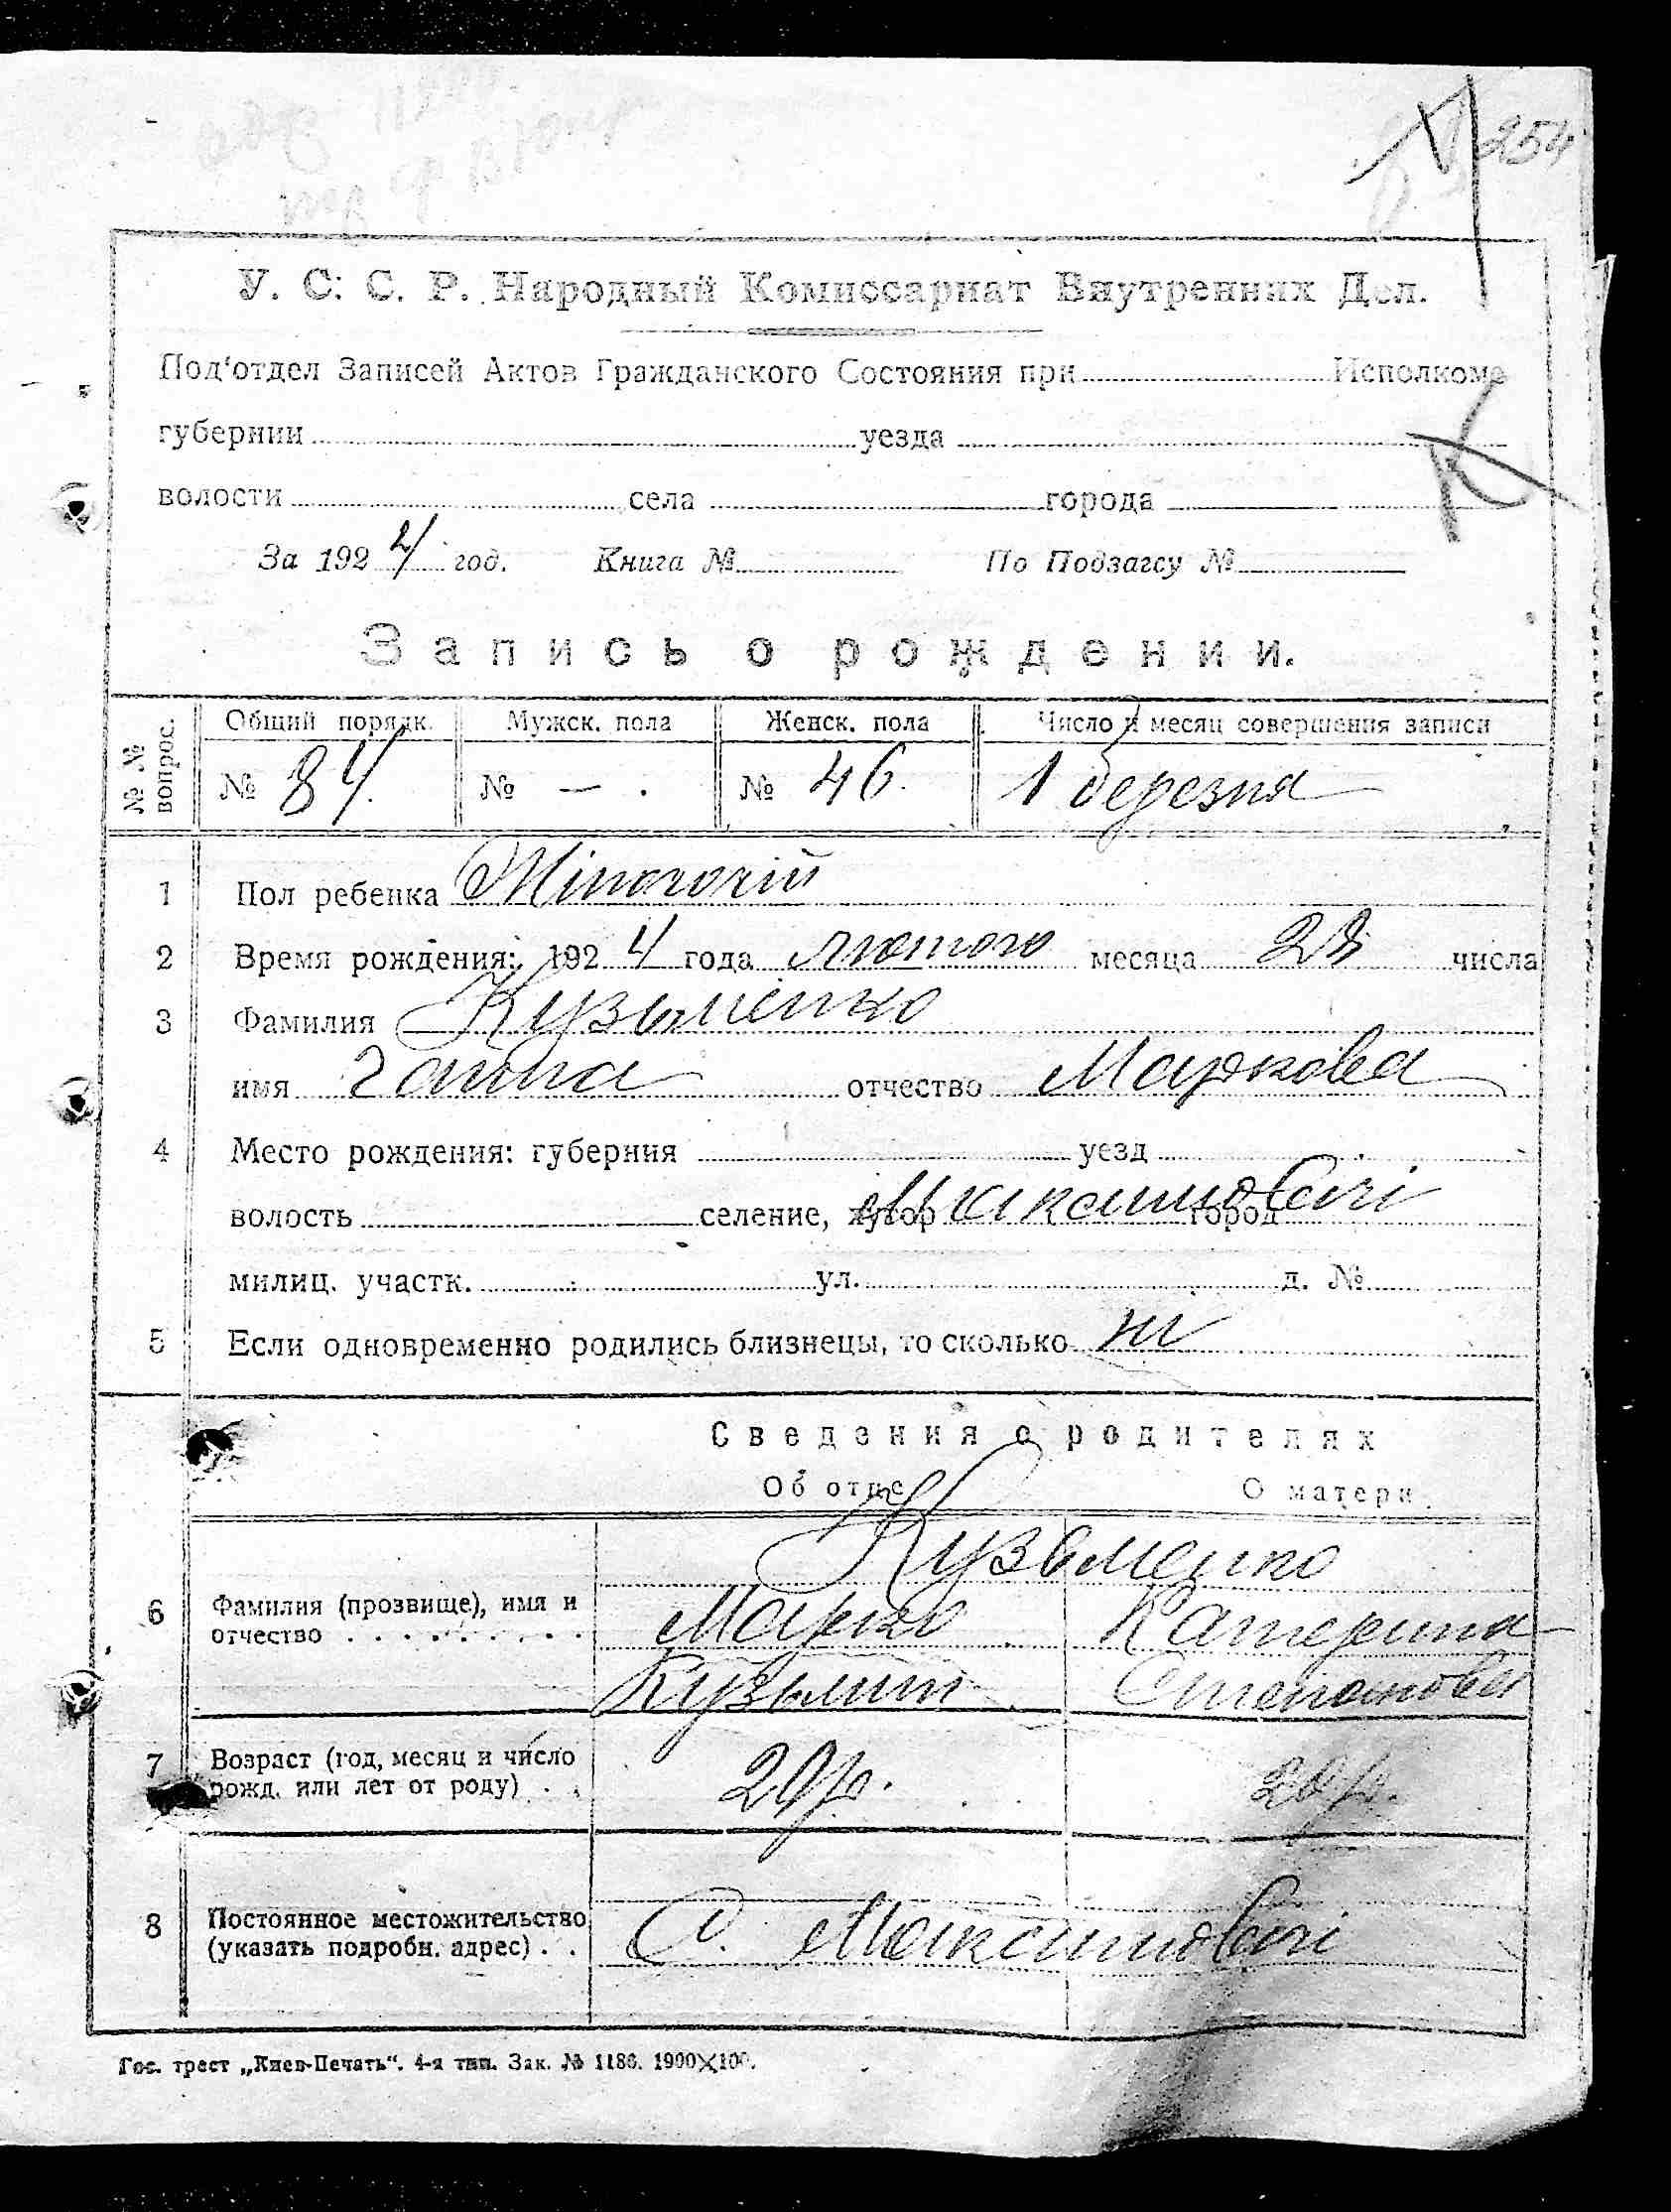 254
У. С. С. Р. Народный Комиссариат Внутренних Дел.
Под'отдел Записей Актов Гражданского Состояния при Исполкоме
губернии уезда
К
волости села города
За 1924 год. Книга № По Подзагсу №
Запись о рождении.
№ № вопрос. Общий порядк. Мужск. пола Женск. пола Число и месяц совершения записи
№ 84. № — . № 46. 1 березня
1 Пол ребенка Жіночогій
2 Время рождения: 1924 года лютого месяца 28 числа
3 Фамилия Кузьменко
имя Ганна отчество Маркова
4 Место рождения: губерния уезд
волость селение, хутор Максимовичі город
милиц. участк. ул. д. №
5 Если одновременно родились близнецы, то сколько ні
Сведения о родителях
Об отце О матери
Кузьменко
6 Фамилия (прозвище), имя и отчество Марко Катерина
Кузьмич Степановна
7 Возраст (год, месяц и число рожд. или лет от роду) 29 р. 20 р.
8 Постоянное местожительство (указать подробн. адрес) С. Максимовичі
Гос. трест „Киев-Печать“. 4-я тип. Зак. № 1186. 1900×100.